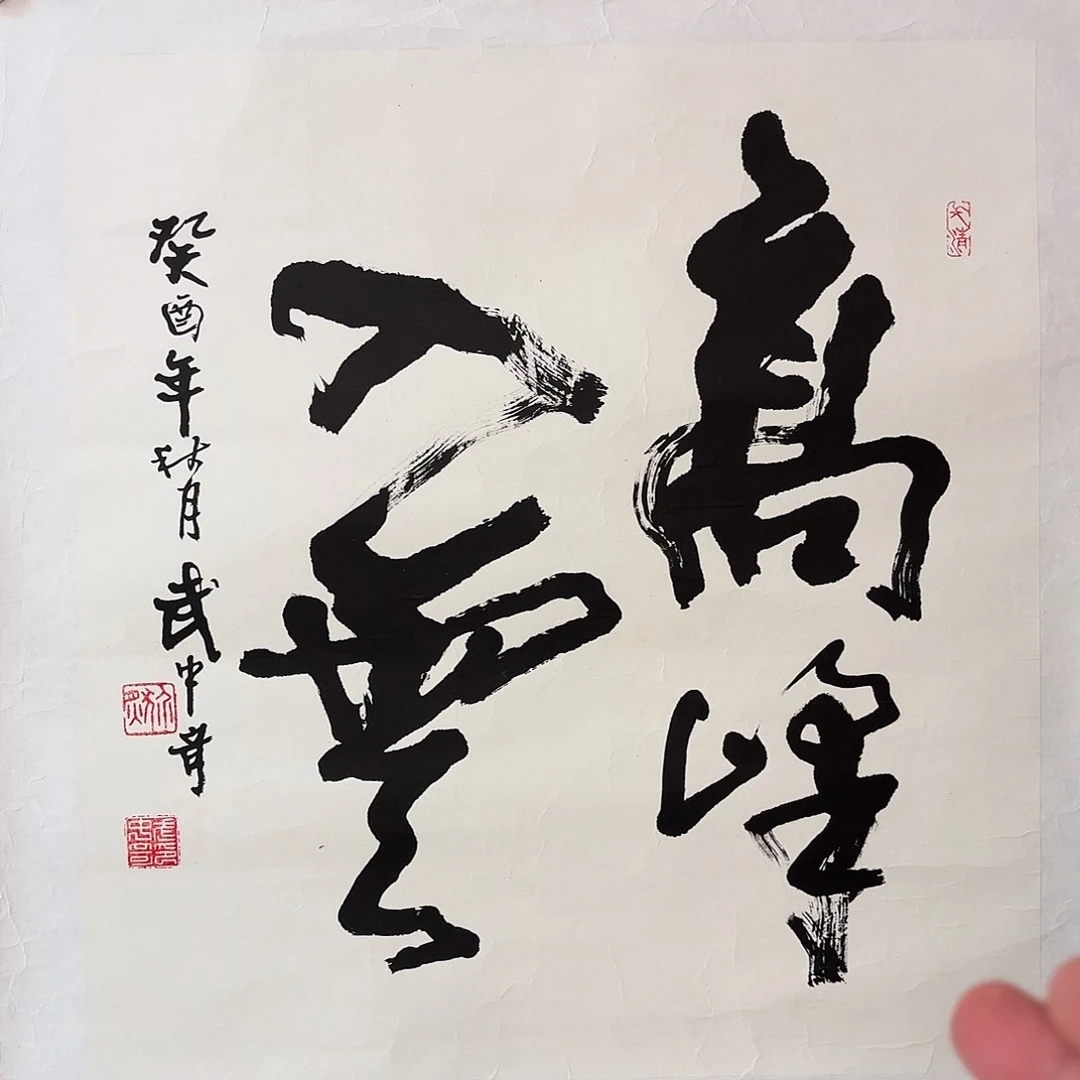 高峰
入雲
癸酉年秋月 武中奇